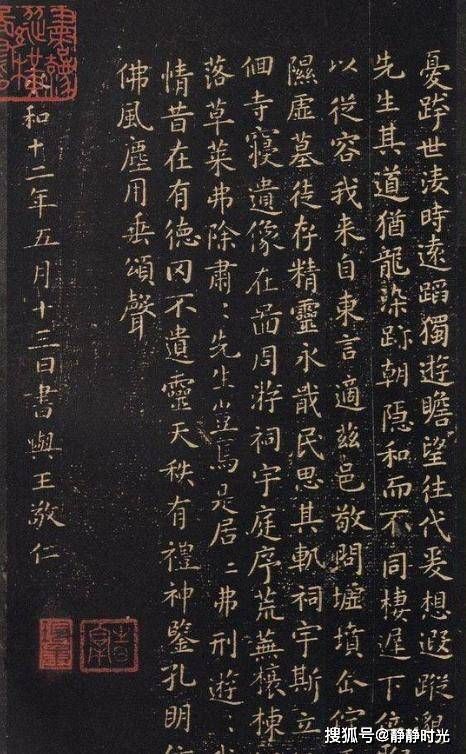 憂跨世淩時遠蹈獨遊瞻望往代爰想遐蹤邈
先生其道猶龍染跡朝隱和而不同棲遲下
以從容我来自東言適茲邑敬問墟墳企佇
隰虛墓徒存精靈永戢民思其軌祠宇斯立
佪寺寢遺像在啚周遊祠宇庭序荒蕪榱棟
落草萊弗除肅：先生豈焉是居：弗刑遊：
情昔在有德罔不遺靈天秩有禮神鑒孔明
佛風塵用垂頌聲
和十二年五月十三日書與王敬仁
搜狐号@静静时光